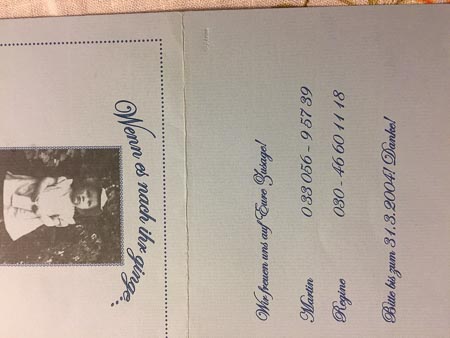 Wenn es nach ihr ginge...
Wir freuen uns auf Eure Zusage!
Martin 033 056 - 9 57 39
Regine 030 - 46 60 11 18
Bitte bis zum 31.3.2004! Danke!